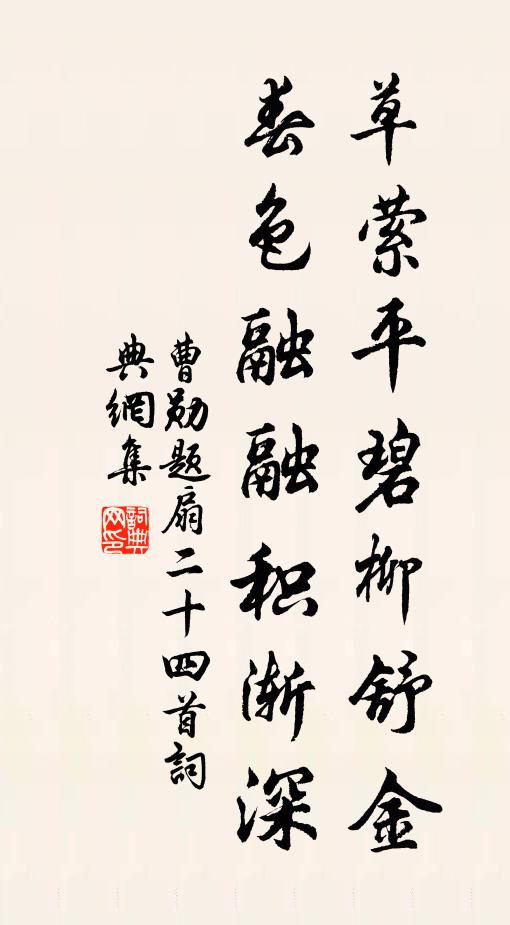 草萦平碧柳舒金
春色融融积渐深
曹勋题扇二十四首詞
典網集
詞典网印